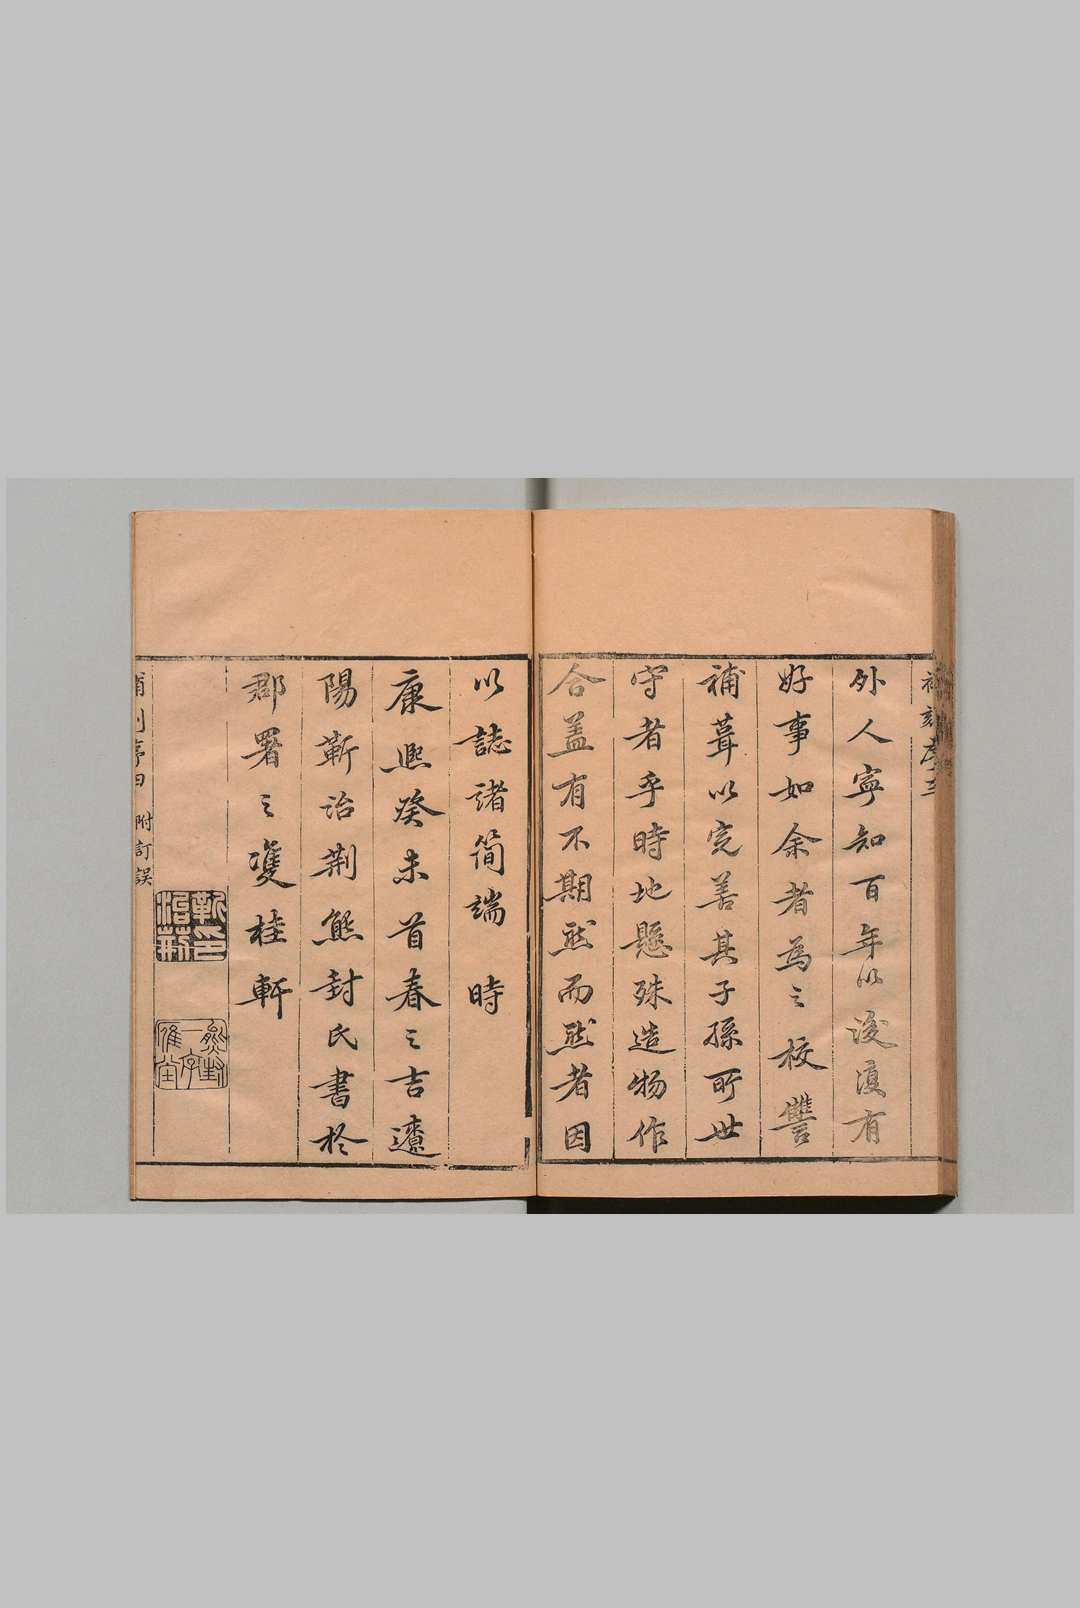 外人寧知百年以後復有
好事如余者為之校讐
補葺以完善其子孫可世
守者乎時地懸殊造物作
合盖有不期然而然者因
以誌諸简端 時
康熙癸未首春之吉遼
陽靳治荆熊封氏書於
郡署之雙桂軒
靳治荆印
熊封一字雁堂
補刻序四 附訂誤